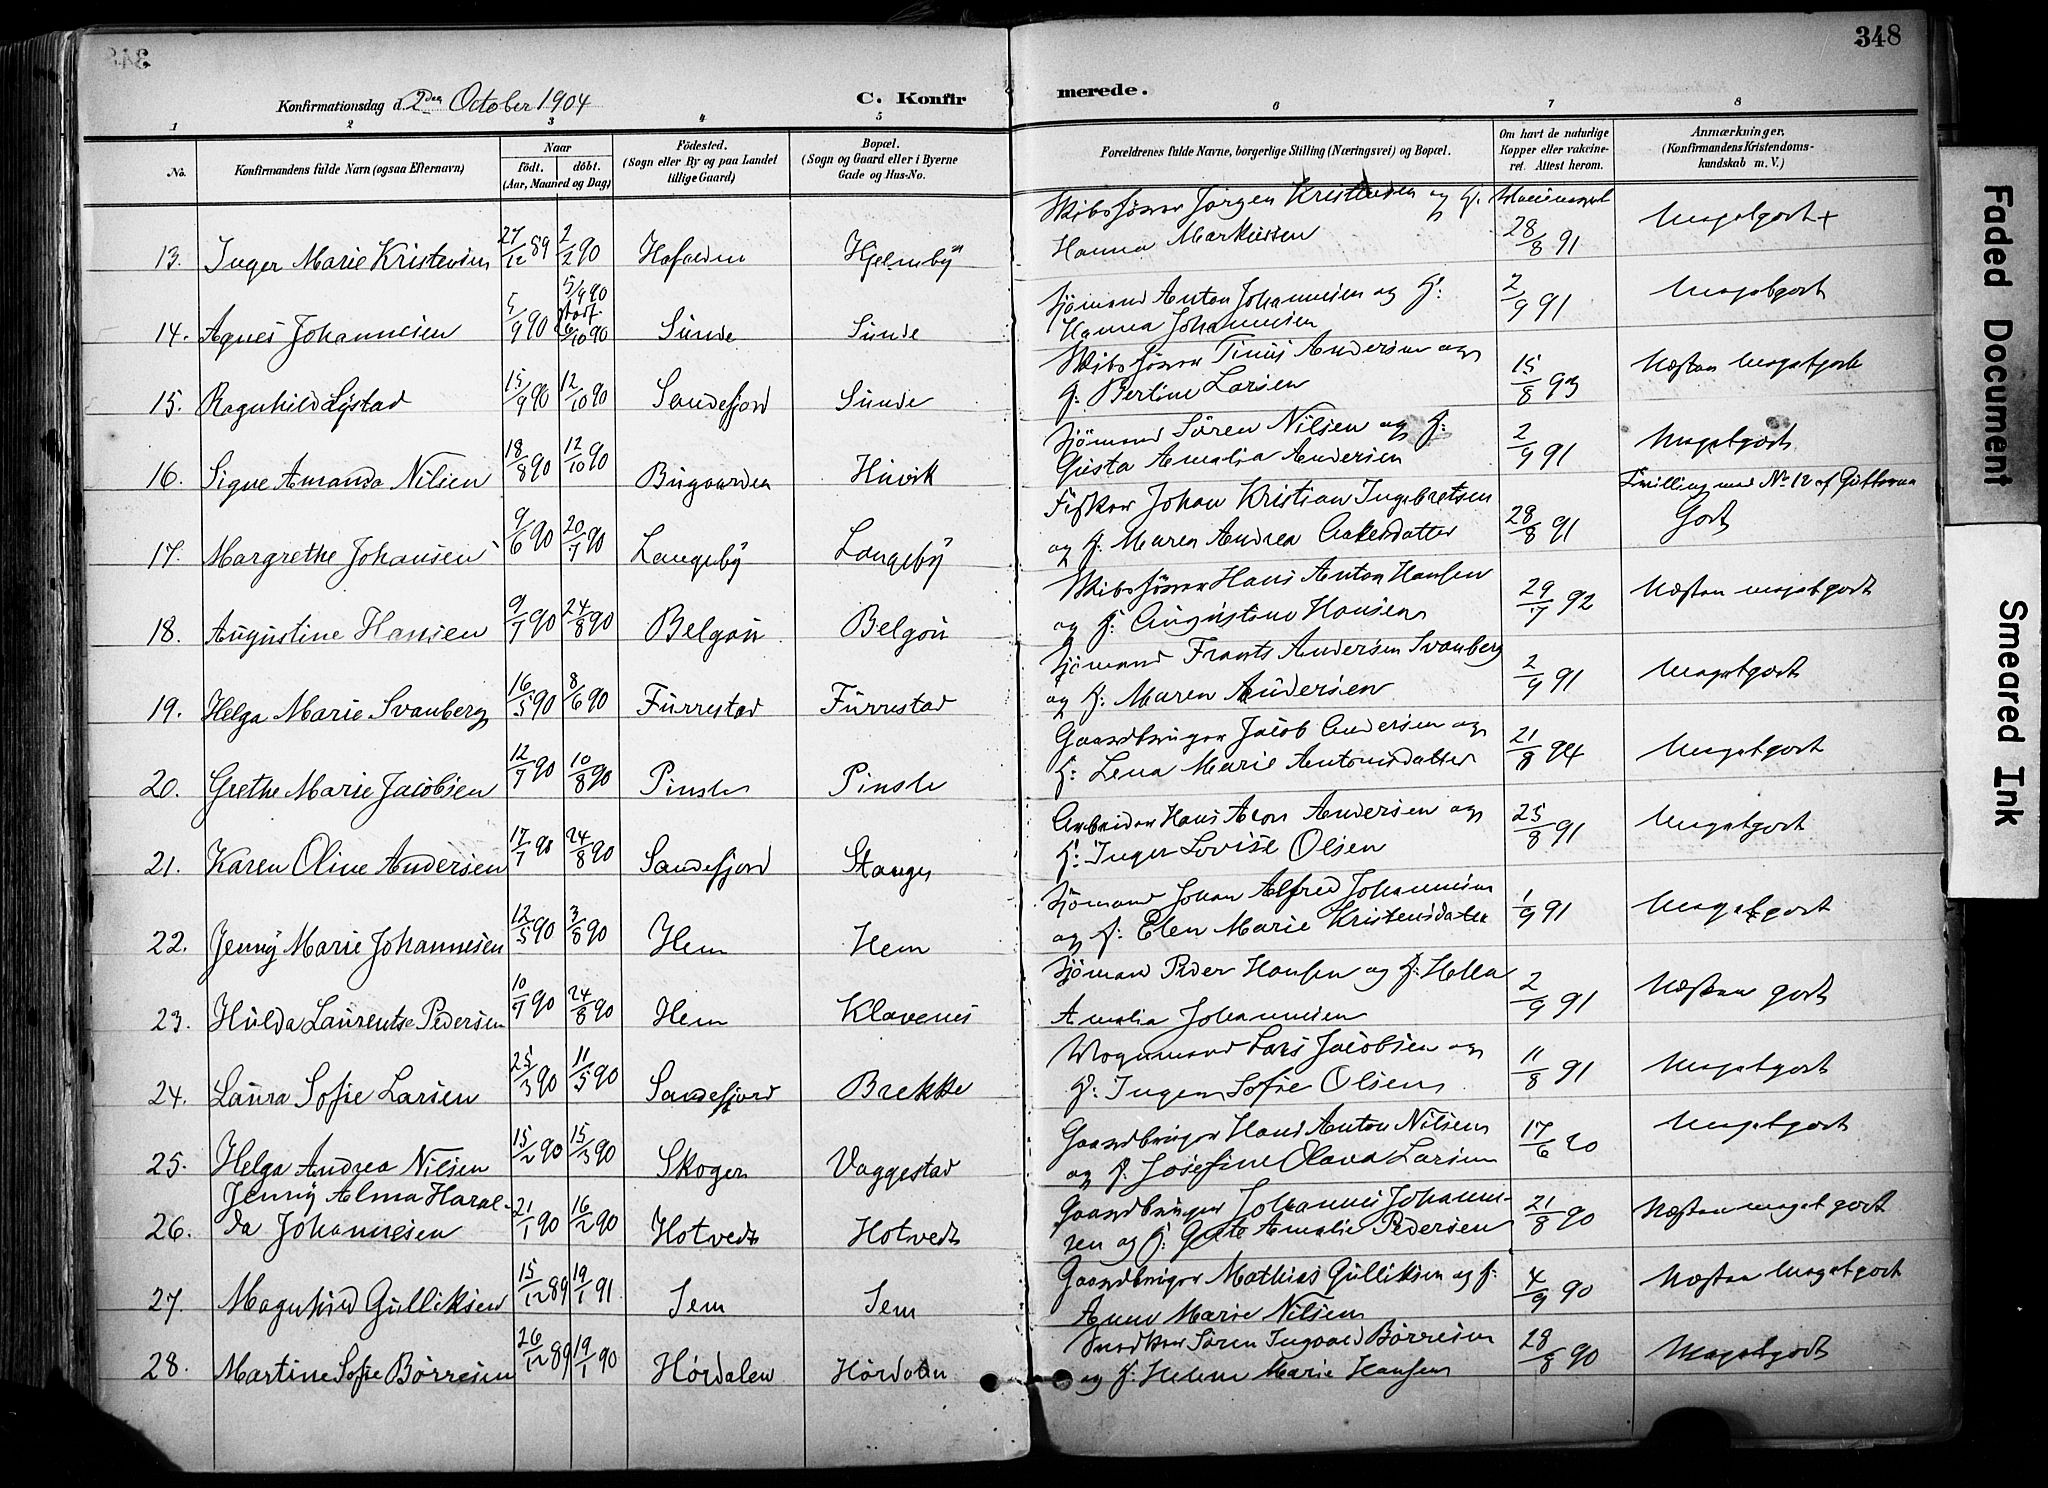 348
Konfirmationsdag d. 2den October 1904
C. Konfirmerede.
1 2 3 4 5 6 7 8
No. Konfirmandens fulde Navn (ogsaa Efternavn) Naar født. døbt. (Aar, Maaned og Dag) Födested. (Sogn eller By og paa Landet tillige Gaard) Bopæl. (Sogn og Gaard eller i Byerne Gade og Hus-No. Forældrenes fulde Navne, borgerlige Stilling (Næringsvei) og Bopæl. Om havt de naturlige Kopper eller vakcineret. Attest herom. Anmærkninger. (Konfirmandens Kristendomskundskab m. V.)
Skibsfører Jørgen Kristensen og H.
13. Inger Marie Kristensen 27/12 89 2/2 90 Hjelmby Hanna Markussen 28/8 91 Megetgodt +
Sjömand Anton Johannesen og H:
14. Agnes Johannesen 5/9 90 5/9 90 stadf. 26/10 90 Sunde Sunde Hanna Johannesen 2/9 91 Megetgodt
Skibsfører Tinus Andersen og
15. Ragnhild Lystad 15/9 90 12/10 90 Sandefjord Sunde H. Bertine Larsen 15/8 93 Næsten Megetgodt
Sjömand Sören Nilsen og H.
16. Signe Amanda Nilsen 18/8 90 12/10 90 Bugaarden Huvik Gusta Amalia Andersen 2/9 91 Megetgodt
Tvilling med No 12 af Gutterne
Fisker Johan Kristian Ingebretsen
17. Margrethe Johansen 9/6 90 20/7 90 Langeby Langeby og H. Maren Andrea 28/8 91 Godt
Skibsfører Hans Anton Hansen
18. Augustine Hansen 9/7 90 24/8 90 Belgau Belgau og H. Augustine Hansen 29/7 92 Næsten megetgodt
Sjömand Frants Andersen Svanberg
19. Helga Marie Svanberg 16/5 90 8/6 90 Furrestad Furrestad og H. Maren Andersen 2/9 91 Megetgodt
Gaardbruger Jacob Andersen og
20. Grethe Marie Jacobsen 12/7 90 10/8 90 Pinsle Pinsle H: Lena Marie Antonsdatter 21/8 94 Megetgodt
Arbeider Hans Aron Andersen og
21. Karen Oline Andersen 17/7 90 24/8 90 Sandefjord Stange H: Inger Lovise Olsen 25/8 91 Megetgodt
Sjömand Johan Alfred Johannesen
22. Jenny Marie Johannesen 12/5 90 3/8 90 Hem Hem og H. Elen Marie Kristensdatter 1/9 91 Megetgodt
Sjömand Peder Hansen og H: Hella
23. Hulda Laurentse Pedersen 10/7 90 24/8 90 Hem Klavenes Amalia Johannesen 2/9 91 Næsten godt
Vognmand Lars Jacobsen og
24. Laura Sofie Larsen 25/3 90 11/5 90 Sandefjord Brekke H: Inger Sofie Olsen 11/8 91 Megetgodt
Gaardbruger Hans Anton Nilsen
25. Helga Andrea Nilsen 15/2 90 15/3 90 Skoger Vaggestad og H. Josefine Olava Larsen 17/6 90 Megetgodt
Jenny Alma Haral- Gaardbruger Johannes Johanne-
26. da Johannesen 21/1 90 16/2 90 Hotvedt Hotvedt sen og H: Amalie Pedersen 21/8 90 Næsten meget godt
Gaardbruger Mathias Gulliksen og H.
27. Magnhild Gulliksen 15/12 89 19/1 91 Sem Sem Anne Marie Nilsen 4/9 90 Næsten Megetgodt
Snedker Sören Ingvald Börresen
28. Martine Sofie Börresen 26/12 89 19/1 90 Hördalen Hördalen og H. Helene Marie Hansen 28/8 90 Megetgodt
Faded Document
Smeared Ink